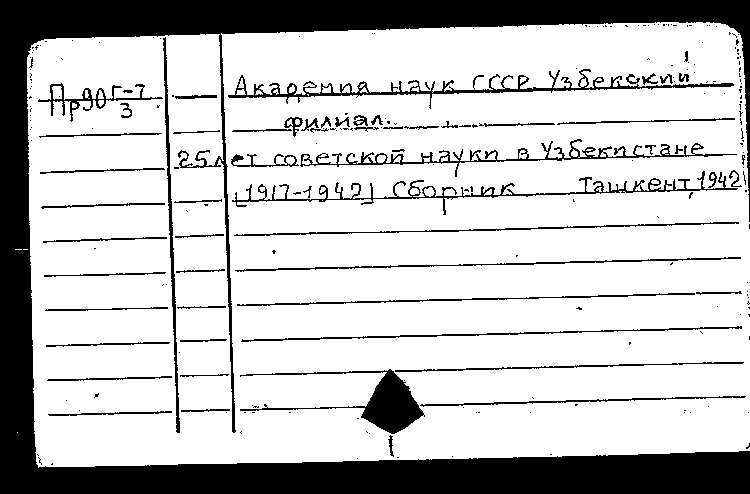 Пр90 Г-7/3 Академия наук СССР Узбекский
филиал.
25 лет советской науки в Узбекистане
[1917-1942] Сборник Ташкент, 1942